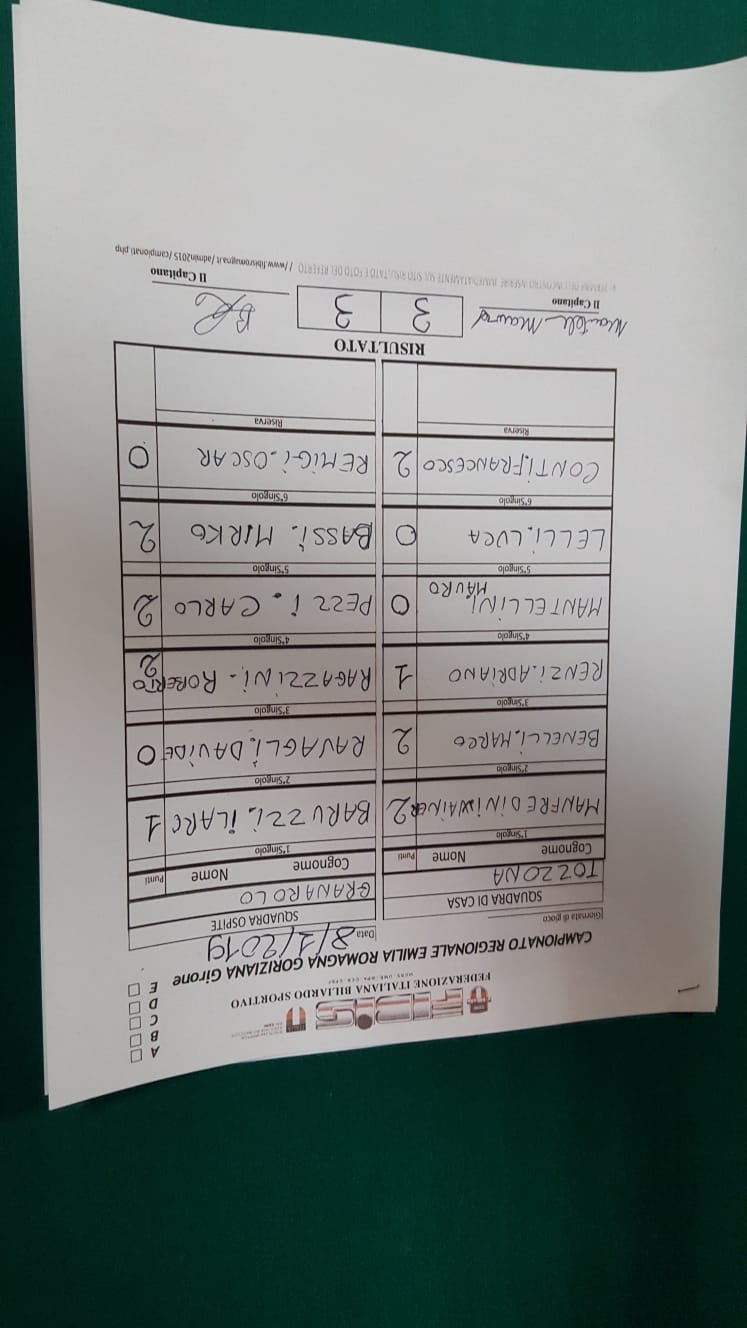 FIBIS
FEDERAZIONE ITALIANA BILIARDO SPORTIVO
CAMPIONATO REGIONALE EMILIA ROMAGNA GORIZIANA Girone
A
B
C
D
E
Giornata di gioco
Data 8/1/2019
SQUADRA DI CASA
SQUADRA OSPITE
TOZZONA
GRANAROLO
Cognome Nome Punti
Cognome Nome Punti
1°Singolo
1°Singolo
MANFREDINI WAINER 2
BARUZZI. ILARC 1
2°Singolo
2°Singolo
BENELLI. MARCO 2
RAVAGLI. DAVIDE 0
3°Singolo
3°Singolo
RENZI. ADRIANO 1
RAGAZZINI - ROBERTO 2
4°Singolo
4°Singolo
MANTELLINI MAURO 0
PEZZI. CARLO 2
5°Singolo
5°Singolo
LELLI. LUCA 0
BASSI. MIRKO 2
6°Singolo
6°Singolo
CONTI. FRANCESCO 2
REMIGI. OSCAR 0
Riserva
Riserva
RISULTATO
3 3
Il Capitano
Il Capitano
INSERIRE IMMEDIATAMENTE SUL SITO RISULTATO E FOTO DEL REFERTO //www.fibisromagna.it/admin2015/campionati.php